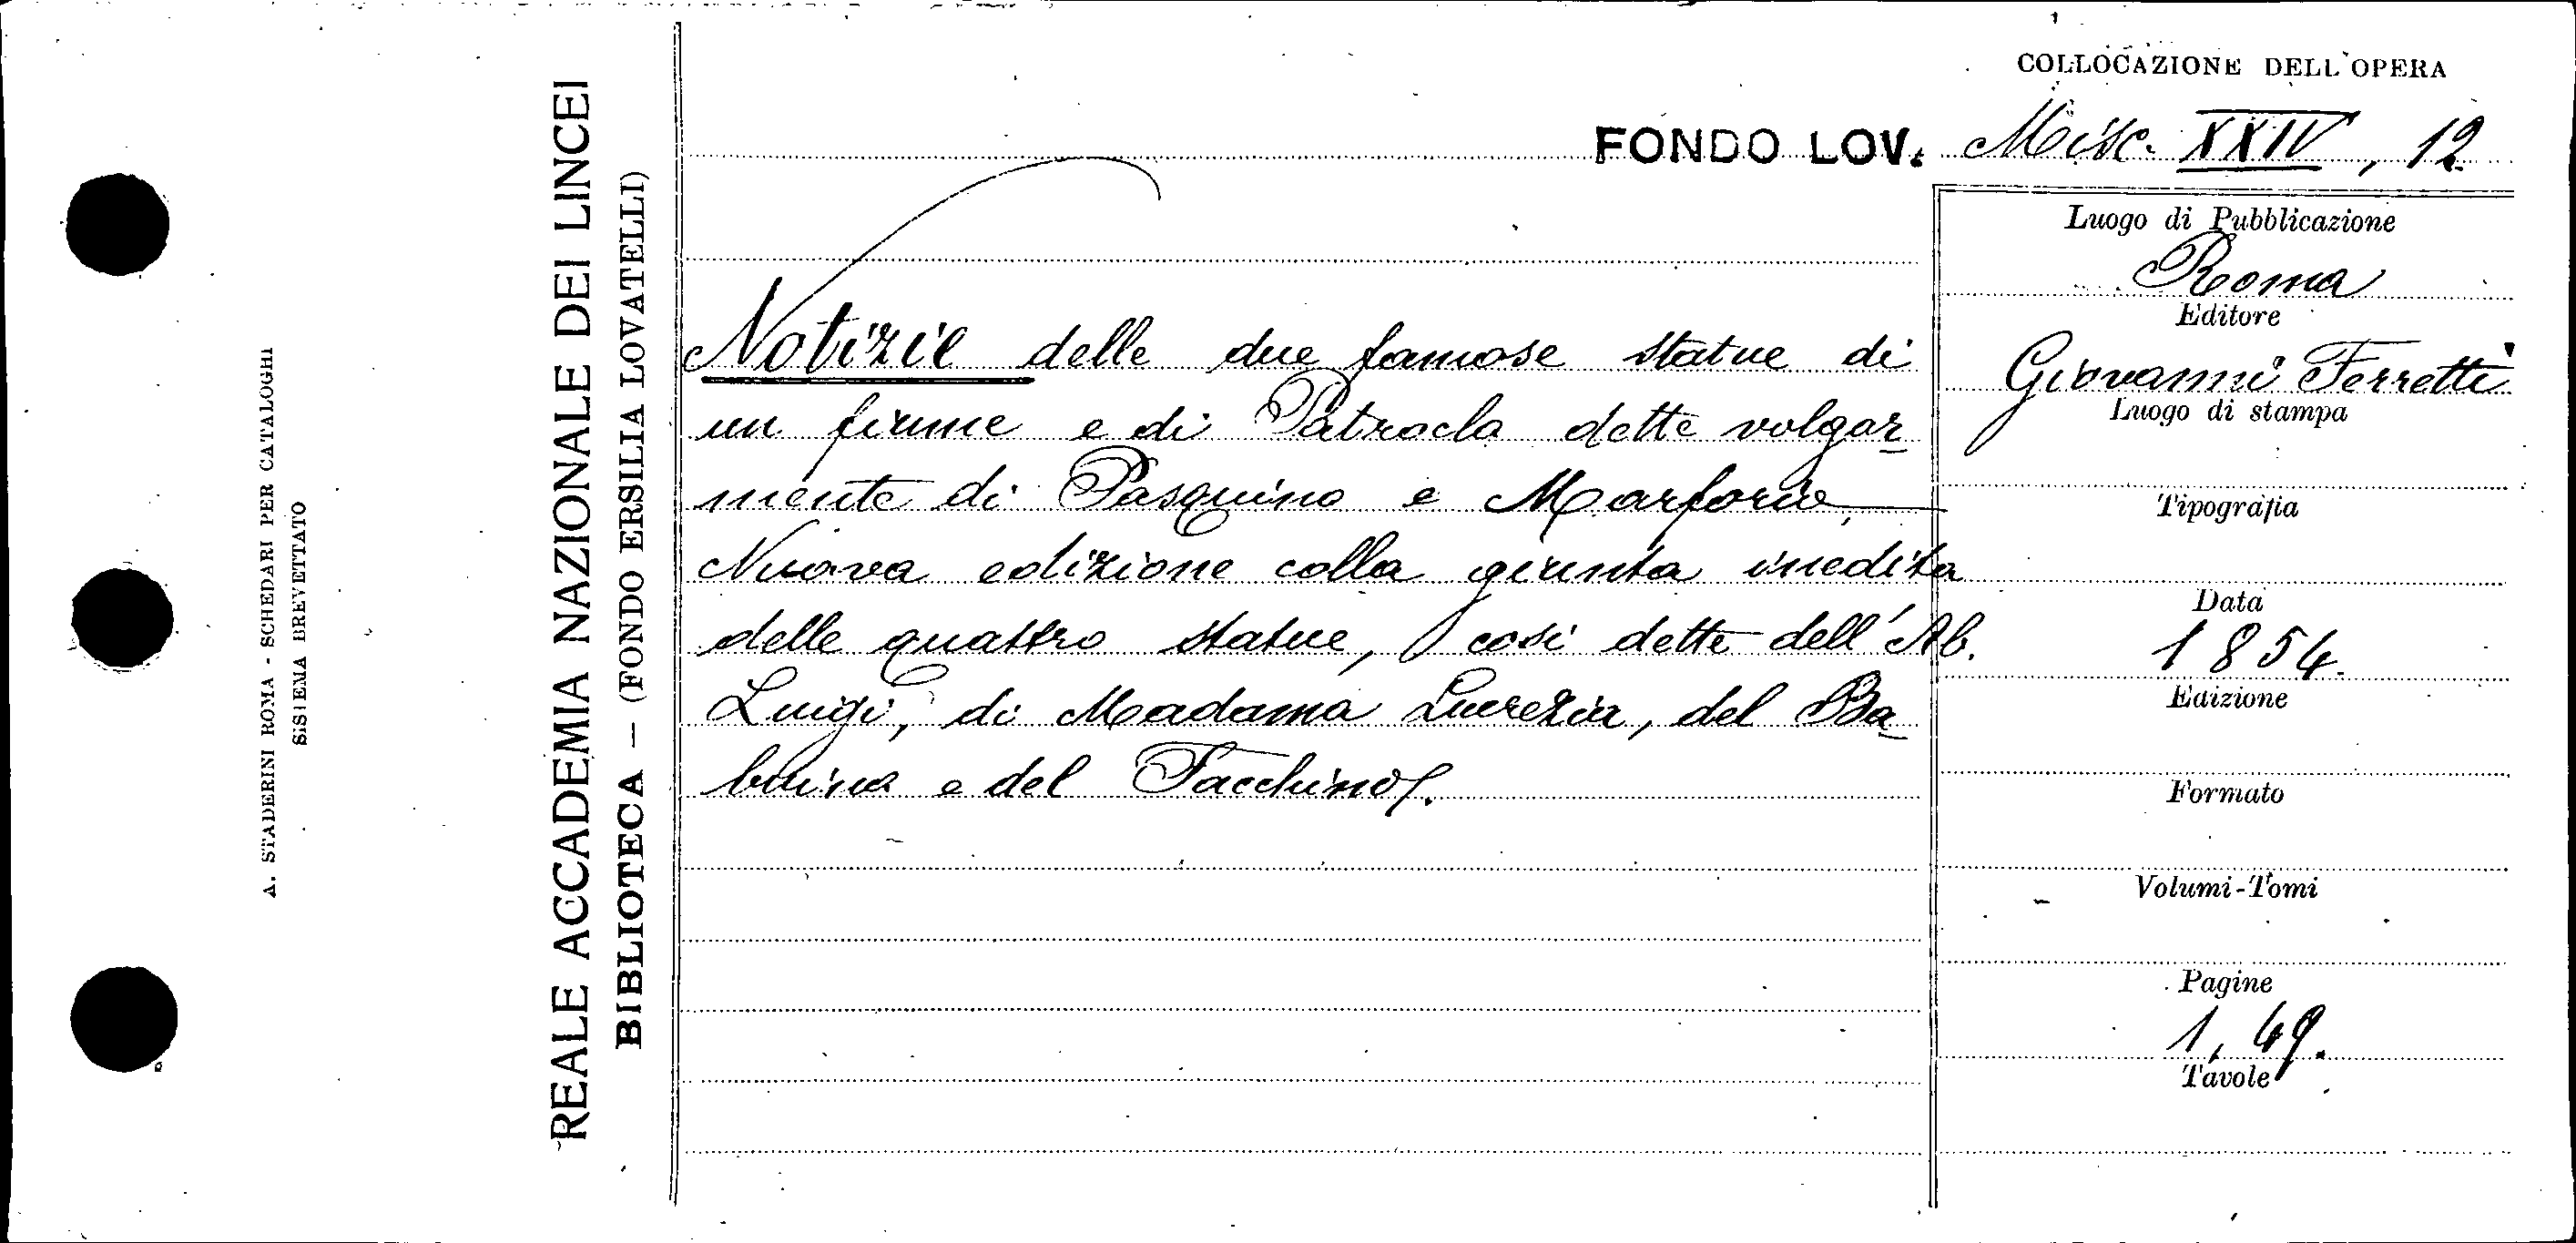 A. STADERINI ROMA - SCHEDARI PER CATALOGHI
SISTEMA BREVETTATO
REALE ACCADEMIA NAZIONALE DEI LINCEI
BIBLIOTECA — (FONDO ERSILIA LOVATELLI)
COLLOCAZIONE DELL'OPERA
FONDO LOV. Misc. XXIV, 12
Notizie delle due famose statue di
un fiume e di Patroclo dette volgar-
mente di Pasquino e Marforio,
Nuova edizione colla giunta inedita
delle quattro statue, così dette dell'Ab.
Luigi, di Madama Lucrezia, del Ba-
buino e del Facchino.
Luogo di Pubblicazione
Roma
Editore
Giovanni Ferretti
Luogo di stampa
Tipografia
Data
1854.
Edizione
Formato
Volumi-Tomi
Pagine
1, 49.
Tavole